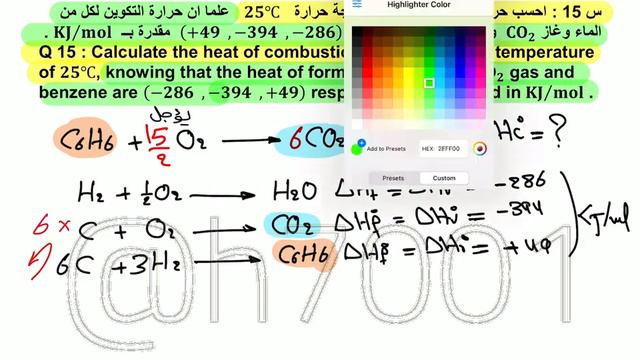 س 15 : احسب حر ة حرارة 25℃ علما ان حرارة التكوين لكل من
الماء وغاز CO₂ و (+49 , −394 , −286) مقدرة بـ KJ/mol .
Q 15 : Calculate the heat of combusti temperature
of 25℃, knowing that the heat of form O₂ gas and
benzene are (−286 , −394 , +49) resp d in KJ/mol .
Highlighter Color
Add to Presets HEX: 2EFF00
Presets Custom
يؤجل
C6H6 + 15/2 O2 → 6CO2 Hc° = ?
H2 + 1/2 O2 → H2O ΔHf° = ΔHr° = -286
6 x C + O2 → CO2 ΔHf° = ΔHr° = -394
6C + 3H2 → C6H6 ΔHf° = ΔHr° = +49
KJ/mol
@h7001